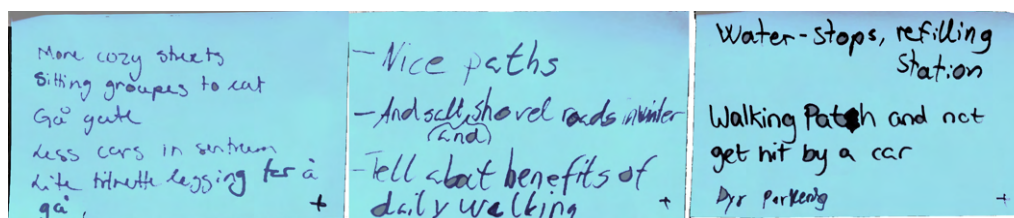 More cozy streets
Sitting groupes to eat
Gå gate
Less cars in sentrum
Lite tilrette legging for å
gå,
+
- Nice paths
- And salt, shovel roads in winter
(and)
- Tell about benefits of
daily walking
+
Water-stops, refilling
Station
Walking Path and not
get hit by a car
Dyr parkering
+